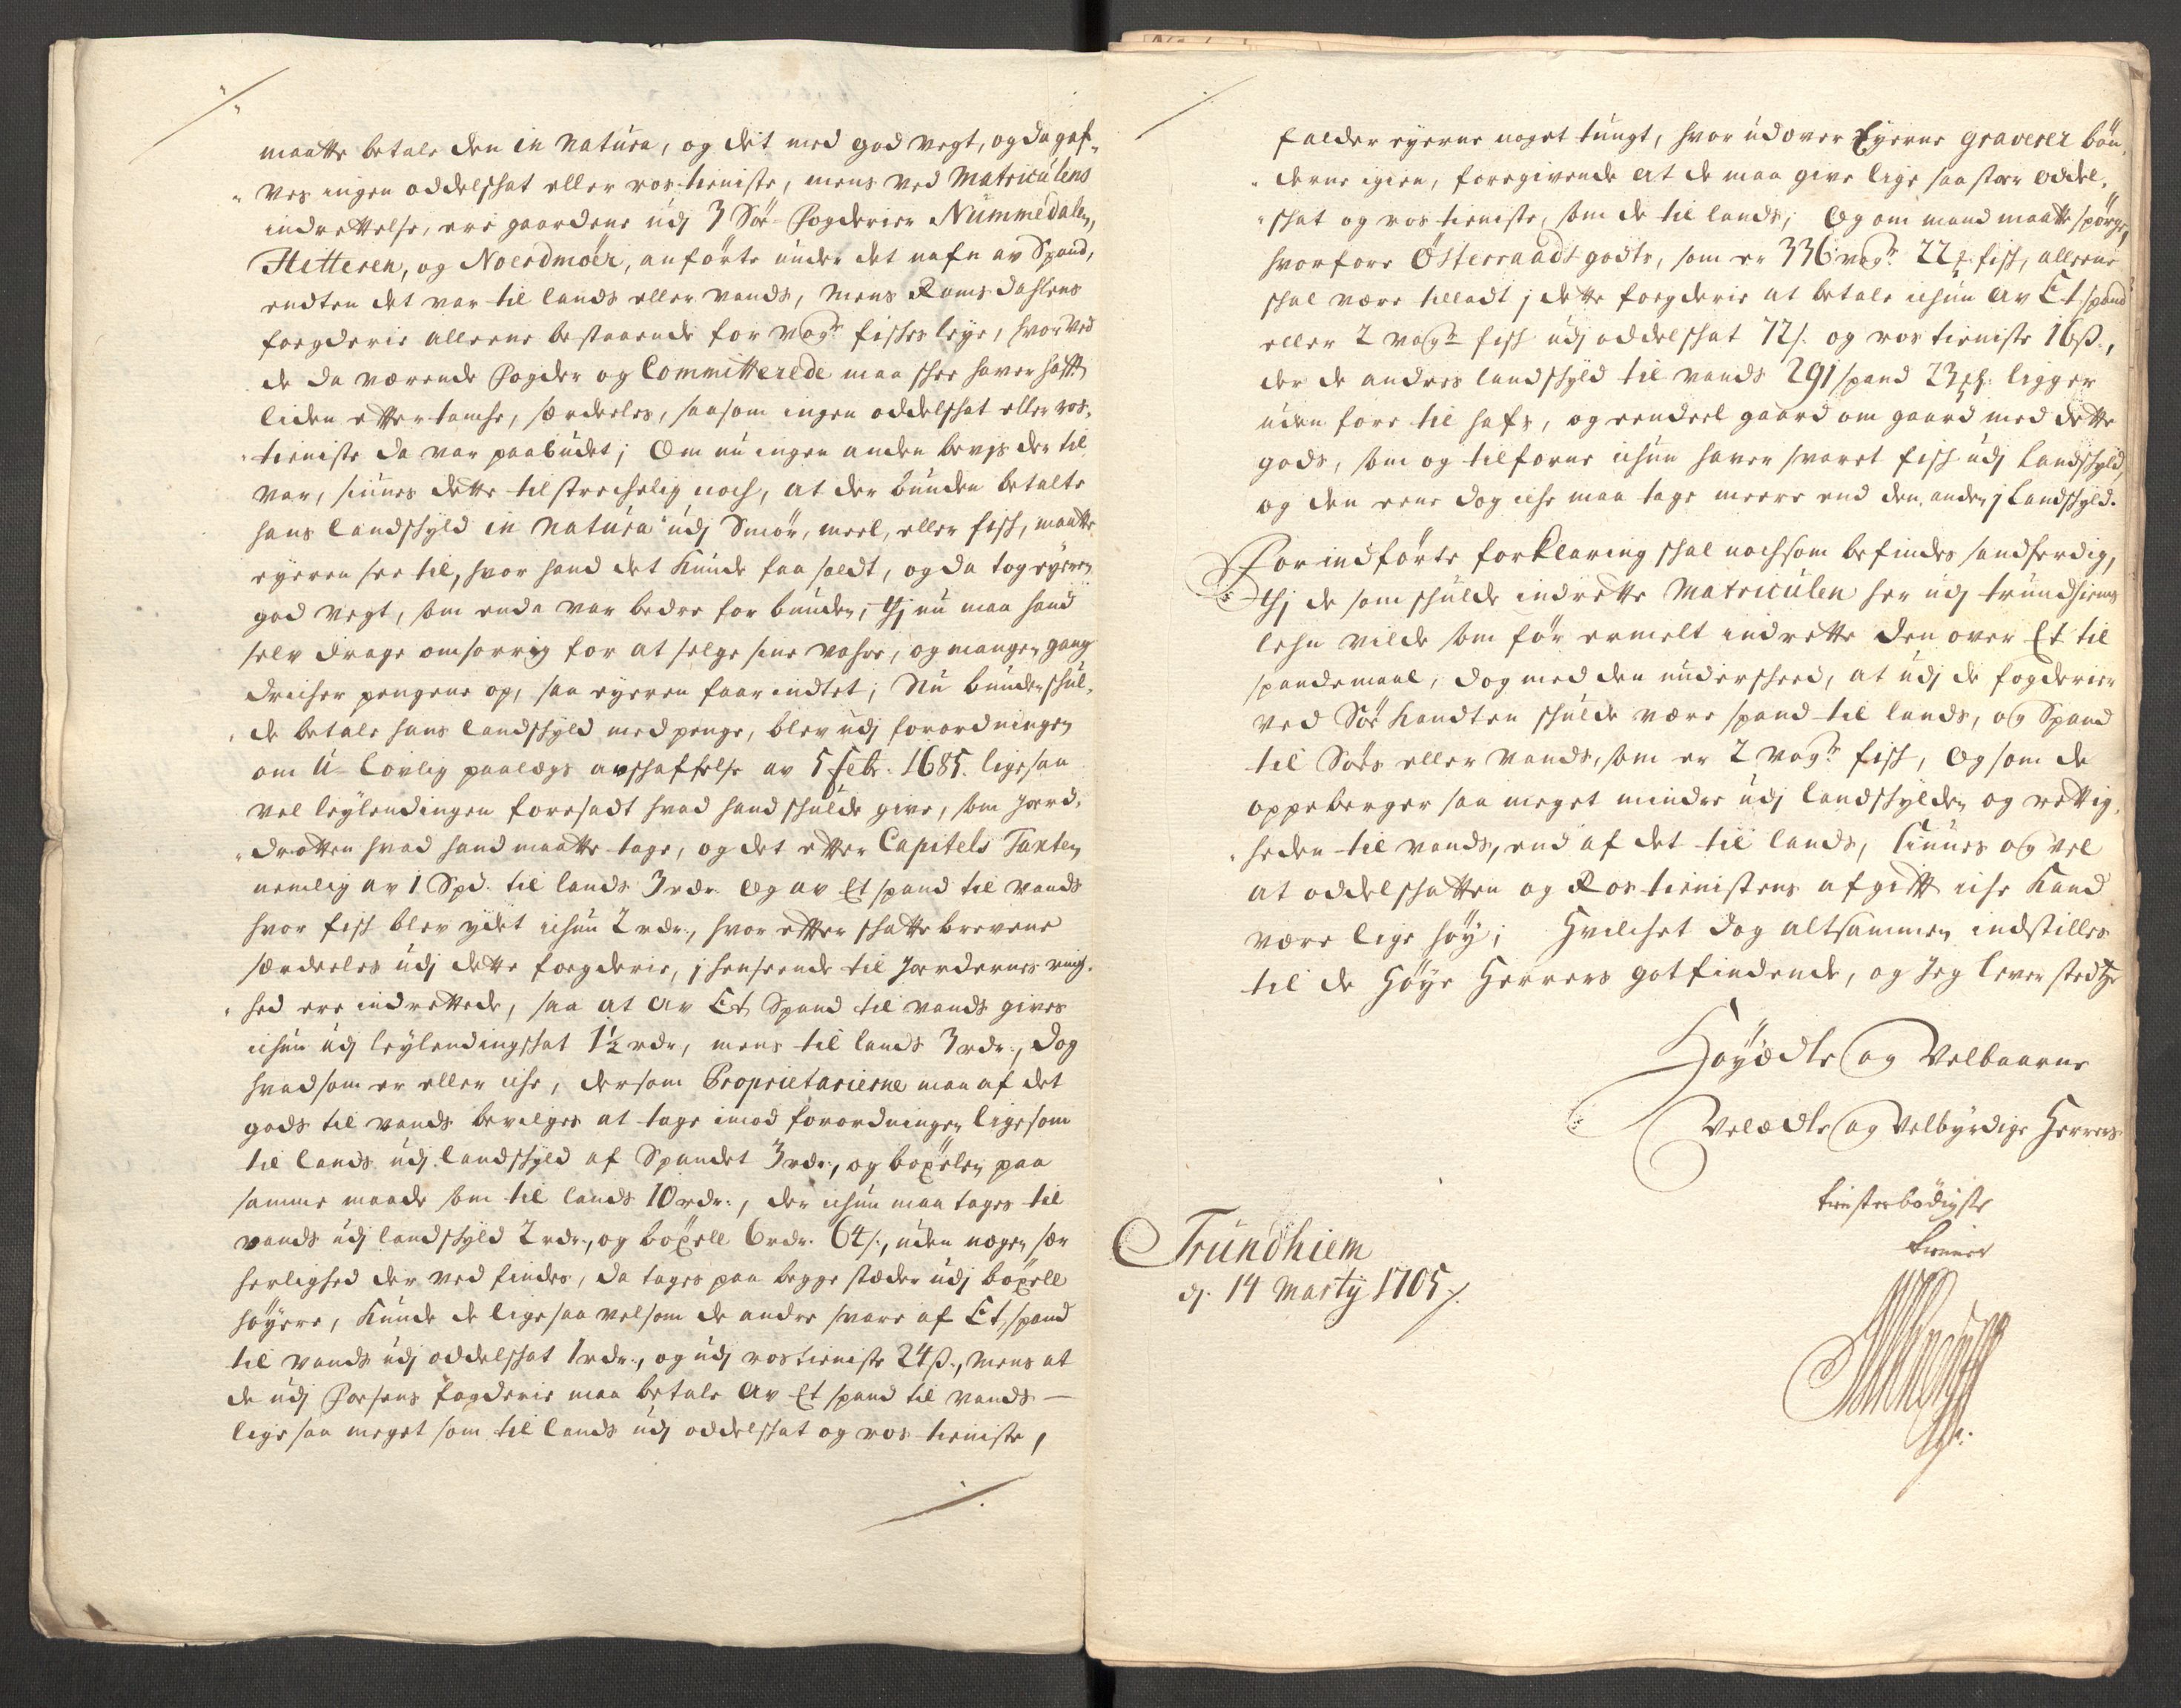 maatte betale den in natura, og det med god vegt, og da gaf„
„ves ingen oddelschat eller ros-tieniste, mens ved Matriculens
indrettelse, ere gaardene udj 3 Söe-Fogderier Nummedalen,
Hitteren, og Noerdmöer, anförte under det nafn av Spand,
endten det var til lands eller vands, mens Romsdahlens
foegderie alleene bestaaende for vog.r fisches leye, hvor ved
de da værende Fogder og Committerede maa schee haver hafft
liden eftertanche, særdeeles, saasom ingen oddelschat eller ros„
„tieniste da var paabudet; Om nu ingen anden bevjs der til
var, siunes dette tilstrechelig noch, at der bunden betalte
hans landschyld in natura udj Smör, meel, eller fisch, maatte
eyeren see til, hvor hand det kunde faa soldt, og da tog eyeren
god vegt, som enda var bedre for bunden; thj nu maa hand
selv drage omsorrig for at selge sine vahre, og mangen gang
dricher pengene op, saa eyeren faar indtet; Nu bunden schul„
„de betale hans landschyld med penge, blev udj forordningen
om U-lovlig paalægs avschaffelse av 5 Febr. 1685. ligesaa
vel leylendingen foresadt hvad hand schulde give, som Jord„
„drotten hvad hand maatte tage, og det efter Capitels Taxten
nemlig av 1 Spd. til lands 3 rdr. og av Et spand til vands
hvor fisch blev ydet ichun 2 rdr., hvor efter schattebrevene
særdeeles udj dette foegderie, j henseende til Jordernes ring„
„hed ere indrettede, saa at av Et Spand til vands gives
ichun udj leylendingschat 1½ rdr, mens til lands 3 rdr., dog
hvad som er eller iche, dersom Proprietarierne maa af det
gods til vands bevilges at tage imod forordningen ligesom
til lands udj landschyld af Spandet 3 rdr., og böxelen paa
samme maade som til lands 10 rdr., der ichun maa tages til
vands udj landschyld 2 rdr., og böxell 6 rdr. 64 s., uden nogen sær
herlighed der ved findes, da tages paa begge stæder udj böxell
höyere, kunde de lige saa vel som de andre svare af Et spand
til vands udj oddelschat 1 rdr., og udj rostieniste 24 ß., mens at
de udj Fosens fogderie maa betale av Et spand til vands —
lige saa meget som til lands udj oddelschat og ros-tieniste,
falder eyerne noget tungt, hvor udover Eyerne graverer bön„
„derne igien, foregivende at de maa give lige saa stor oddel„
„schat og ros tieniste, som de til lands; Og om mand maatte spörge,
hvorfore Österraadt godts, som er 336 vog.r 22 fisch, alleene
schal være tilladt j dette foegderie at betale ichun av Et spand
eller 2 vog.r fisch udj oddelschat 72 s. og ros tieniste 16 ß.,
der de andres landschyld til vands 291 spand ligger
uden fore til hafs, og eendeel gaard om gaard med dette
gods, som og tilforne ichun haver svaret fisch udj Landschyld,
og den eene dog iche maa tage meere end den anden j Landschyld.
For indförte forklaring schal nochsom befindes sandferdig,
thj de som schulde indrette Matriculen her udj Trundhiems
lehn vilde som för ermelt indrette den over Et til
spandemaal, dog med den underscheed, at udj de fogderier
ved Söe kandten schulde være spand til lands, og Spand
til Söes eller vands, som er 2 vog.r fisch, Og som de
oppeberger saa meget mindre udj landschylden og rettig„
„heden til vands, end af det til lands, siunes og vel
at oddelschatten og Ros-tienistens afgift iche kand
være lige höy; Hvilchet dog altsammen indstilles
til de Höye Herrers gotfindende, og Jeg lever stedtze
Höyædle og Velbaarne
Velædle og Velbyrdige Herrers
tiensterbödigste
tienner
Trundhiem
dj. 14 Martij 1705